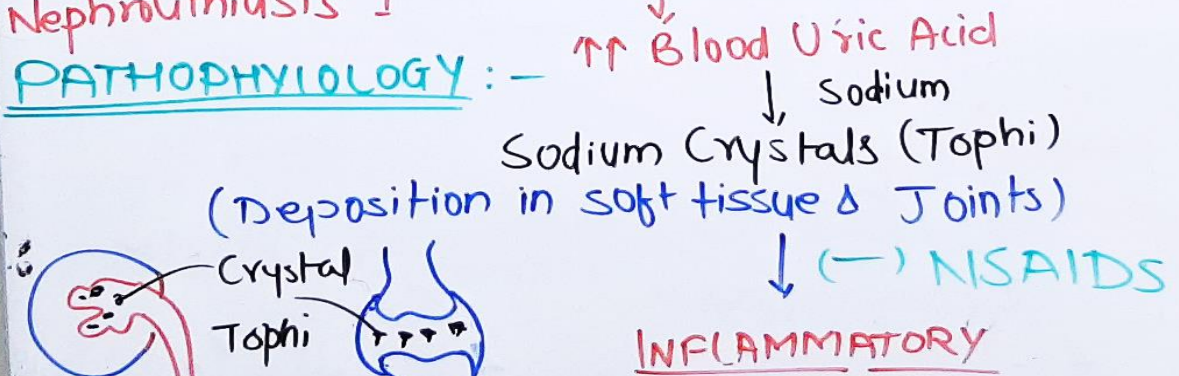 Nephrolithiasis
↑↑ Blood Uric Acid
PATHOPHYIOLOGY :-
↓ Sodium
Sodium Crystals (Tophi)
(Deposition in soft tissue & Joints)
↓ (-) NSAIDS
Crystal
Tophi
INFLAMMATORY